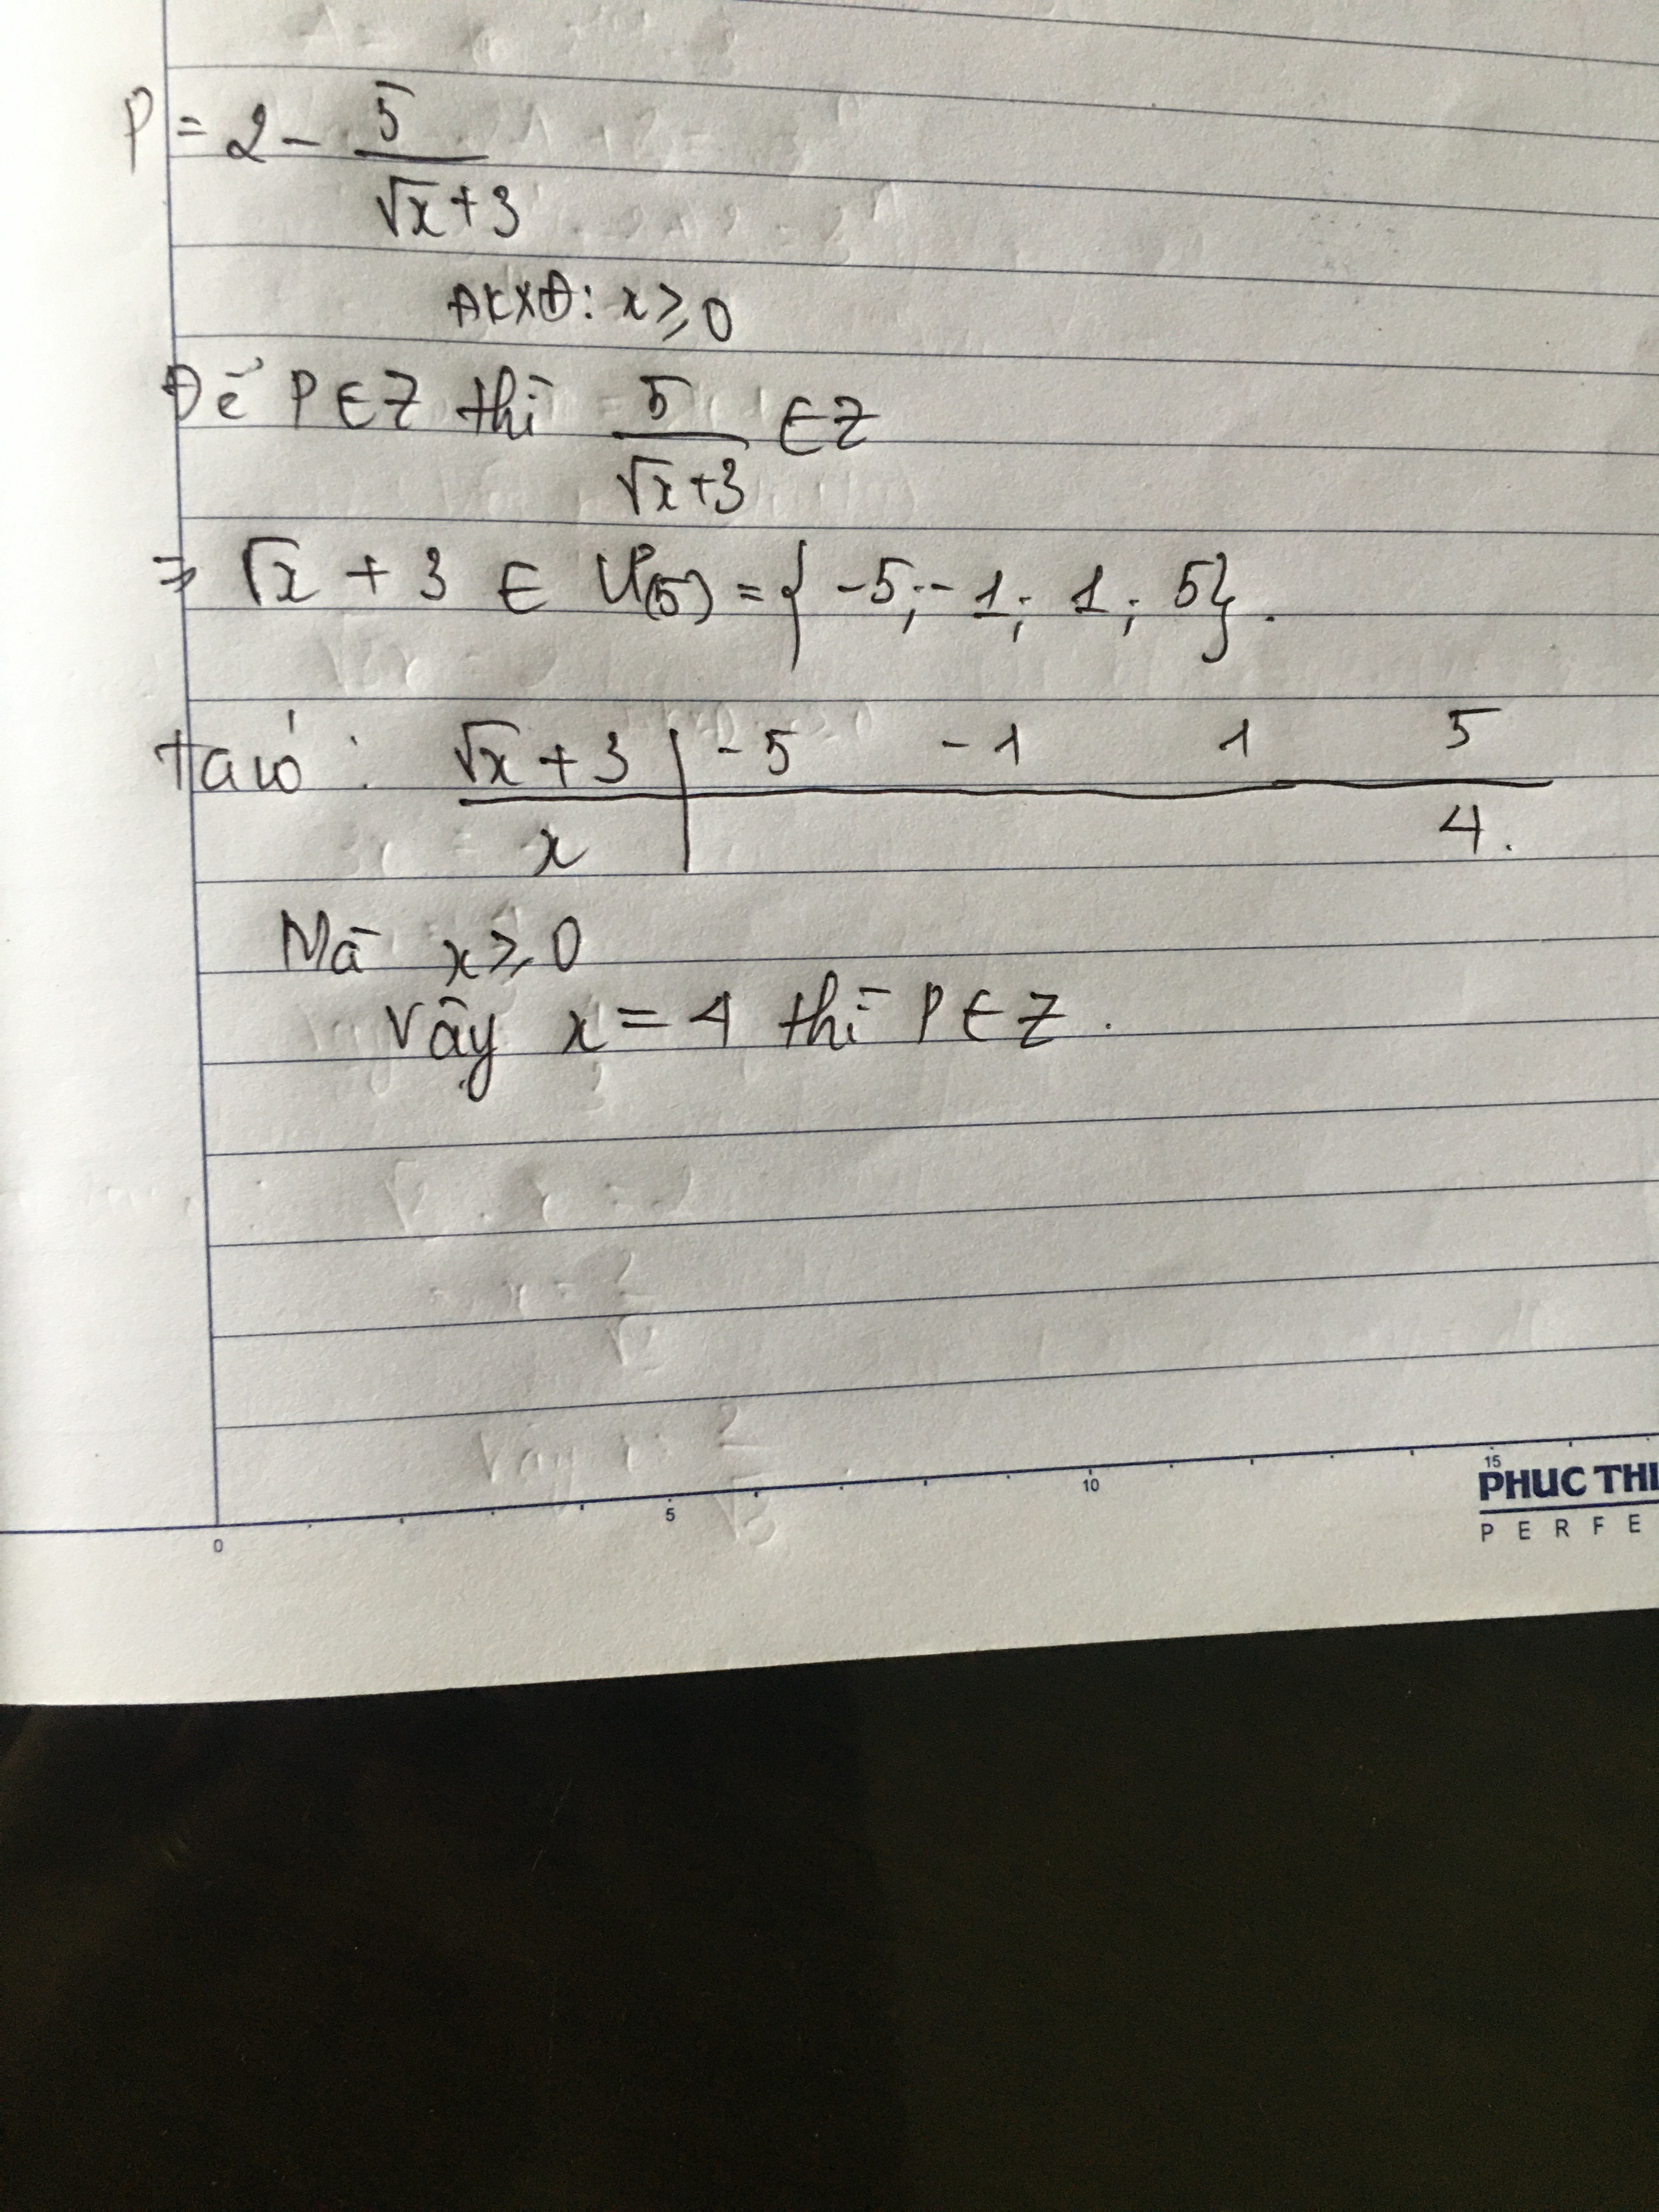 P = 2 - 5/(√x + 3)
ĐKXĐ: x ≥ 0
Để P ∈ Z thì 5/(√x+3) ∈ Z
⇒ √x + 3 ∈ Ư(5) = { -5; -1; 1; 5}.
Ta có: √x + 3 | -5 -1 1 5
x | 4.
Mà x ≥ 0
Vậy x = 4 thì P ∈ Z.
0 5 10 15
PHUC THI
PERFE